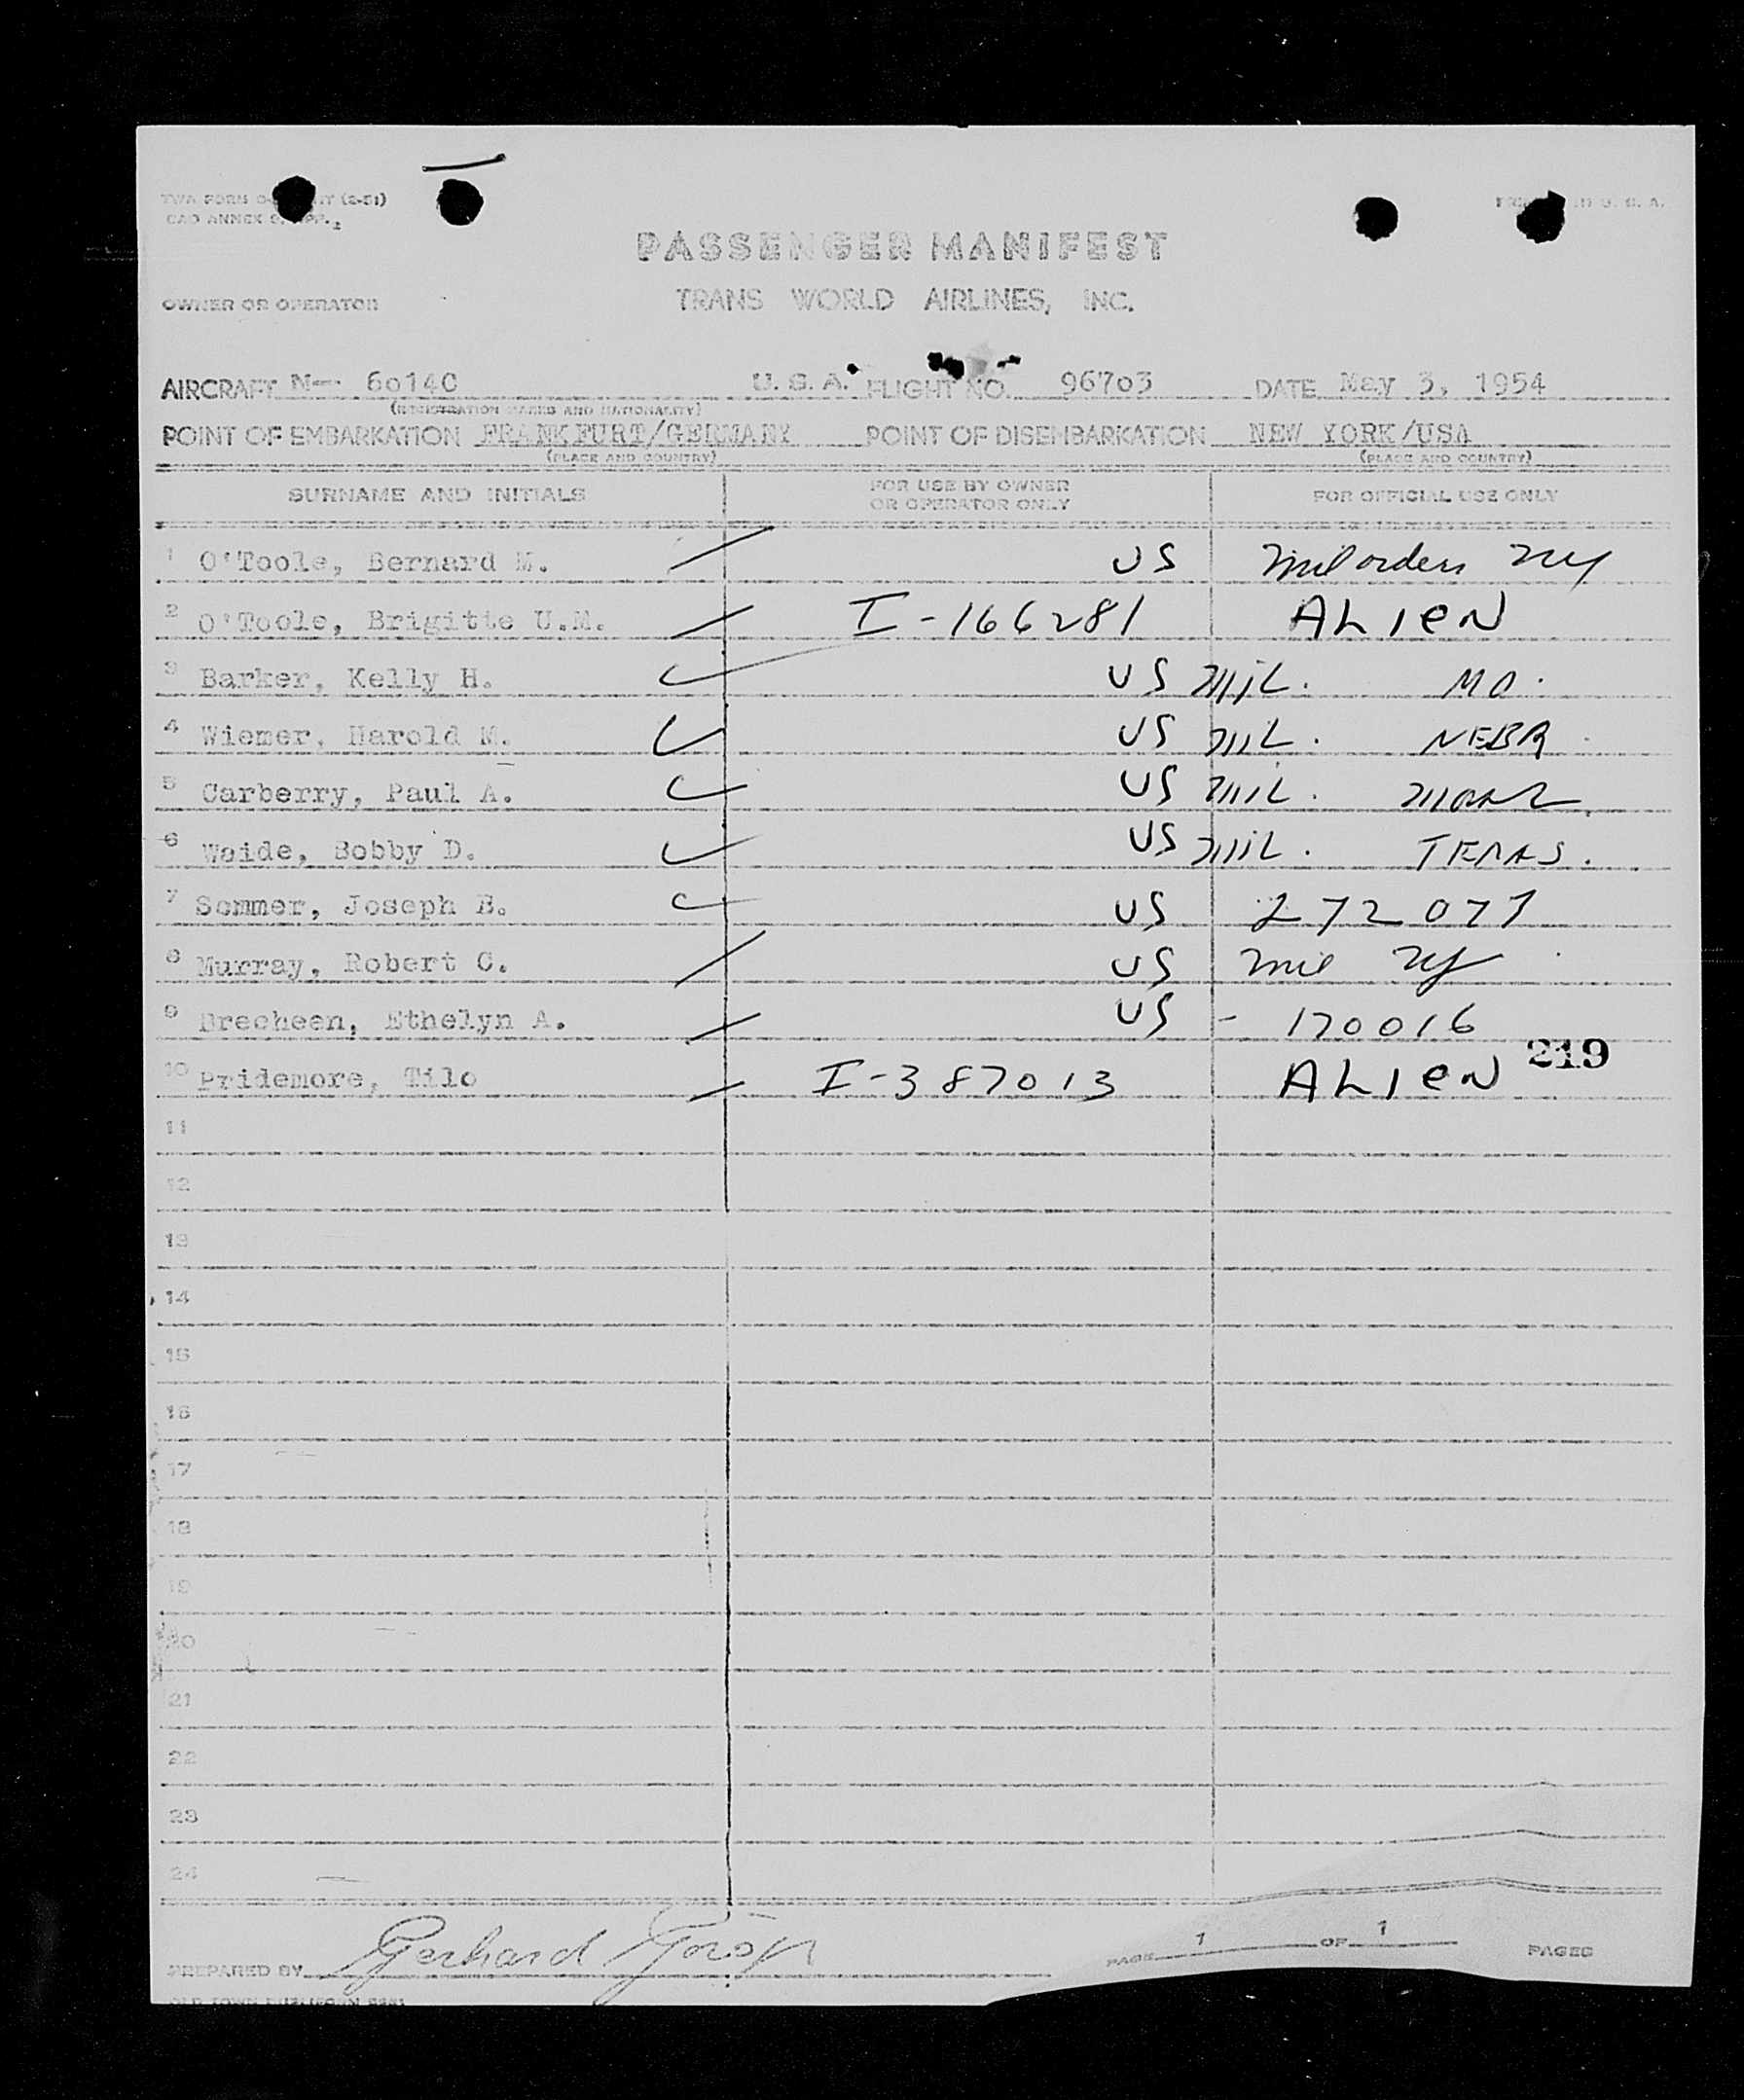 TWA FORM (2-51)
CAO ANNEX 9, APP. 2
PRINTED IN U. S. A.
PASSENGER MANIFEST
OWNER OR OPERATOR TRANS WORLD AIRLINES, INC.
AIRCRAFT N— 6014C U.S.A. FLIGHT NO. 96703 DATE May 3, 1954
(REGISTRATION MARKS AND NATIONALITY)
POINT OF EMBARKATION FRANKFURT/GERMANY POINT OF DISEMBARKATION NEW YORK/USA
(PLACE AND COUNTRY) (PLACE AND COUNTRY)
SURNAME AND INITIALS FOR USE BY OWNER OR OPERATOR ONLY FOR OFFICIAL USE ONLY
1 O'Toole, Bernard M. US Mil orders NY
2 O'Toole, Brigitte U.M. I-166281 ALIEN
3 Barker, Kelly H. US MIL. MO.
4 Wiemer, Harold M. US MIL. NEBR
5 Carberry, Paul A. US MIL.
6 Waide, Bobby D. US MIL. TEXAS.
7 Sommer, Joseph E. US 272077
8 Murray, Robert C. US Mil NY
9 Brecheen, Ethelyn A. US - 170016
219
10 Pridemore, Tilo I-387013 ALIEN
11
12
13
14
15
16
17
18
19
20
21
22
23
24
PREPARED BY Gerhard PAGE 1 OF 1 PAGES